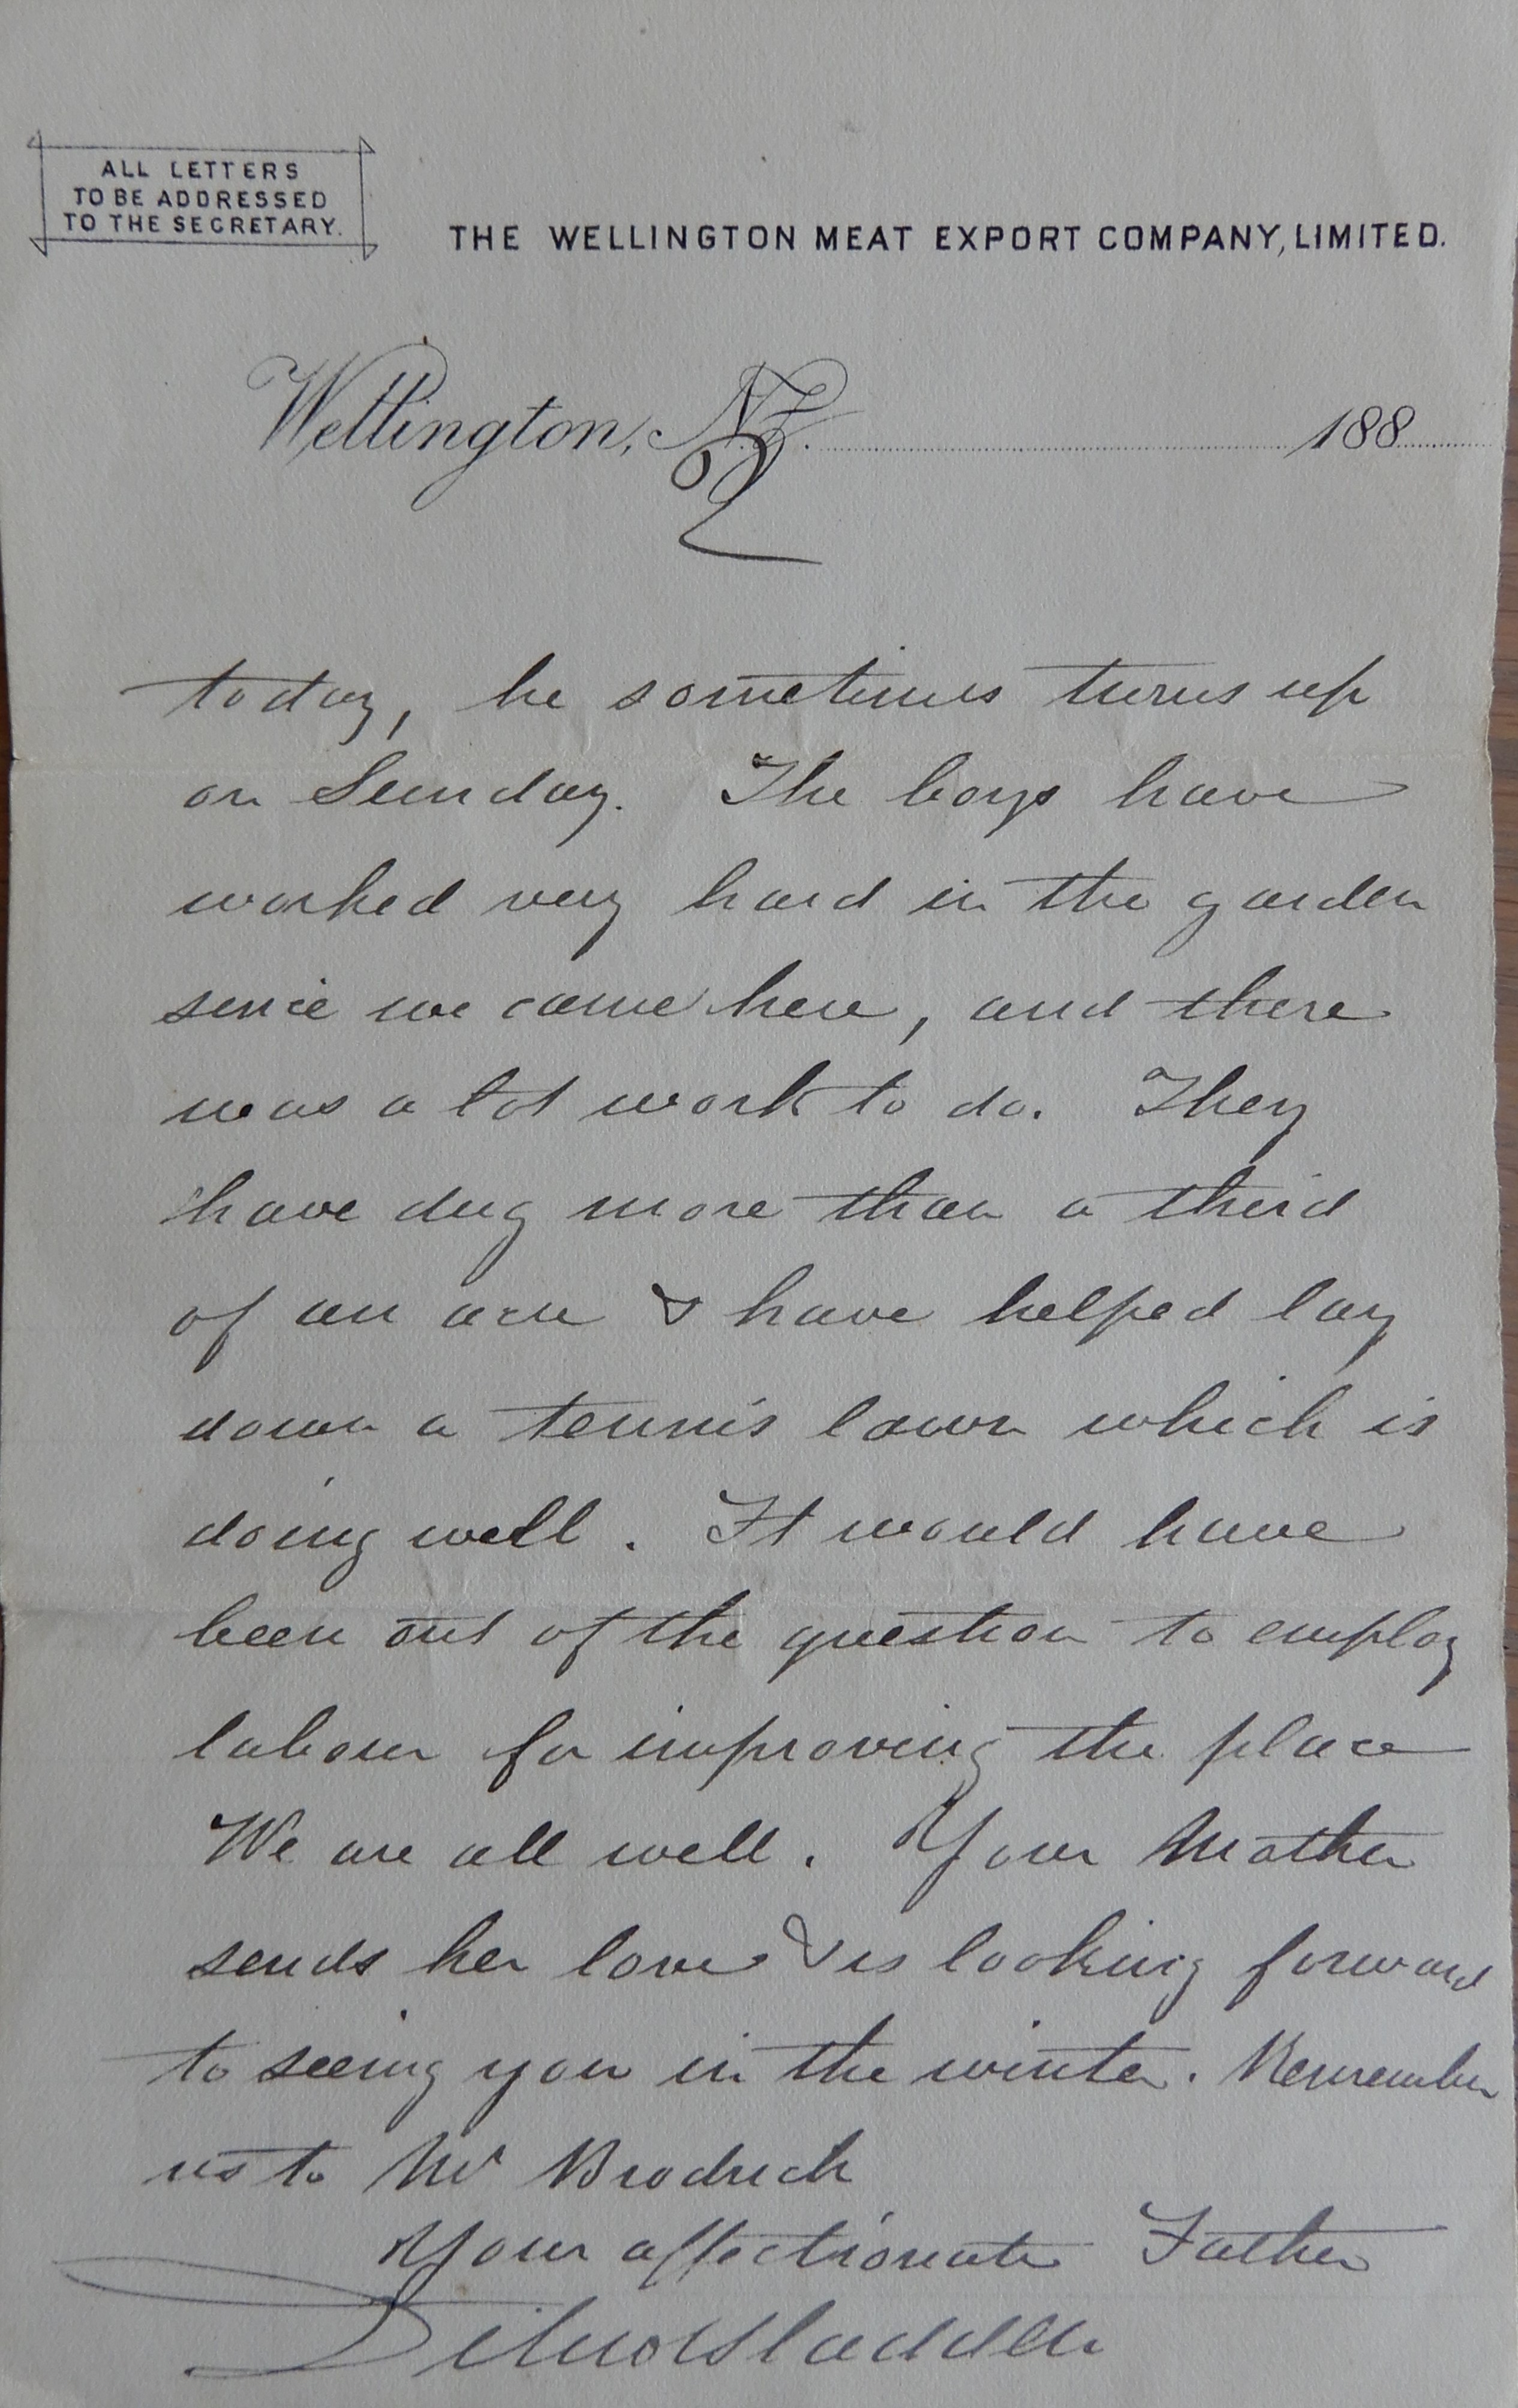 ALL LETTERS
TO BE ADDRESSED
TO THE SECRETARY.
THE WELLINGTON MEAT EXPORT COMPANY, LIMITED.
Wellington, N.Z. 188
2
today, he sometimes turns up
on Sunday. The boys have
worked very hard in the garden
since we came here, and there
was a lot work to do. They
have dug more than a third
of an acre & have helped lay
down a tennis lawn which is
doing well. It would have
been out of the question to employ
labour for improving the place
We are all well. Your Mother
sends her love & is looking forward
to seeing you in the winter. Remember
us to Mr Brodrick
Your affectionate Father